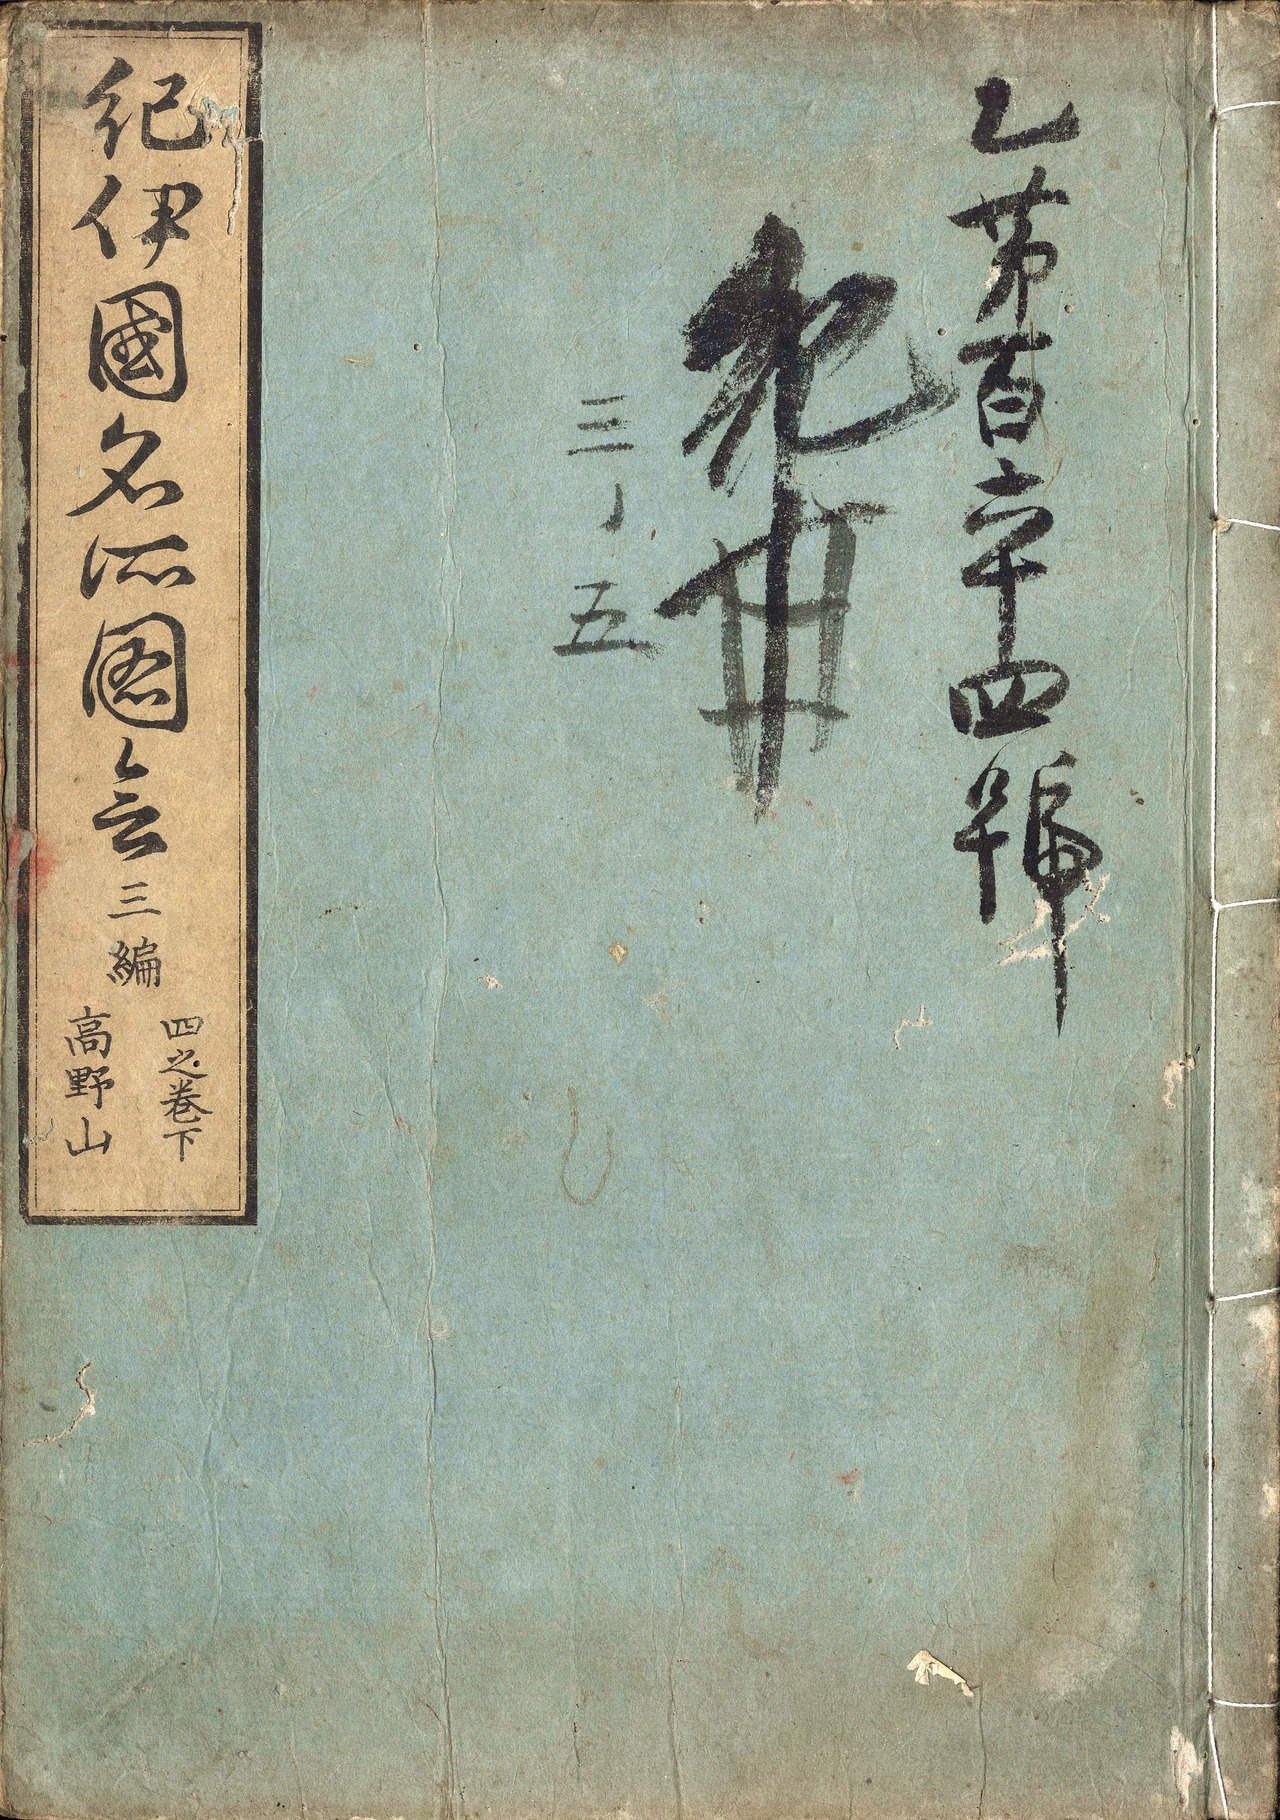 乙第百六十四號
三ノ五
紀伊國名所圖會三編
四之卷下
高野山